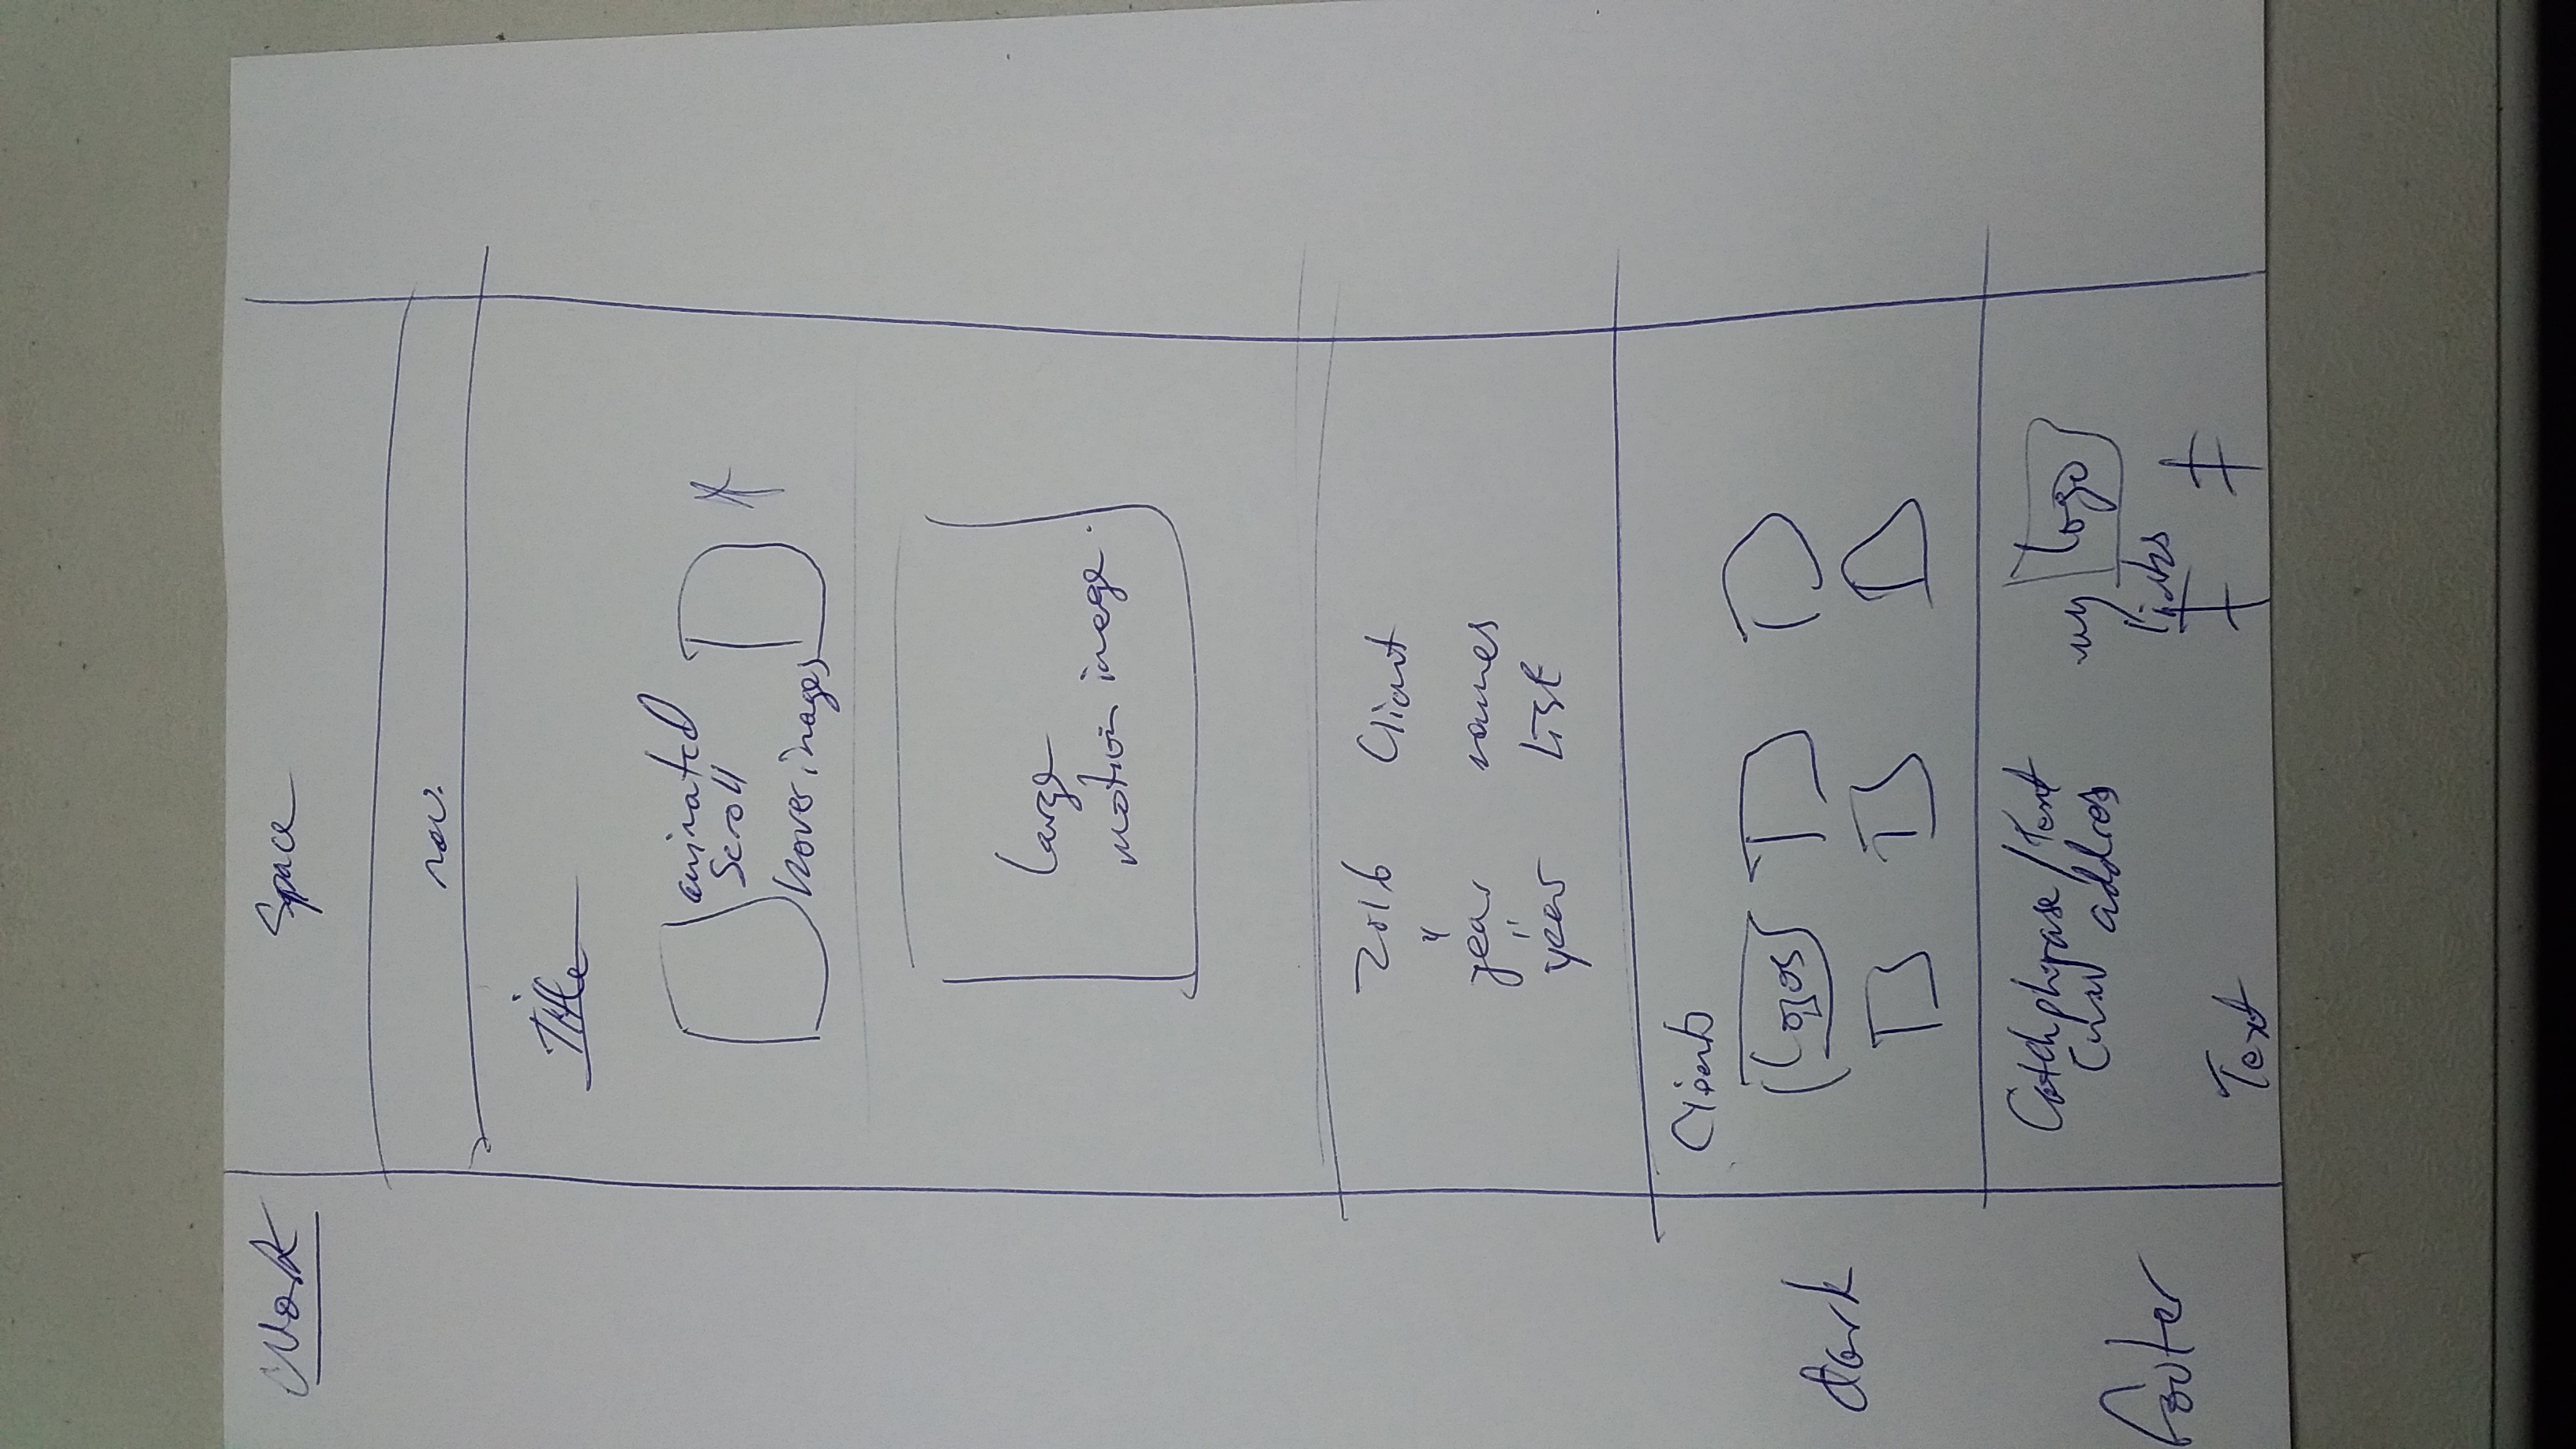 Work
Space
nav.
Title
animated
Scroll
hover images
Large
motion image.
2016 Client
"
year names
"
year List
Clients
Logos
dark
Catchphrase/Text
address
my Logo
links
Footer
Text